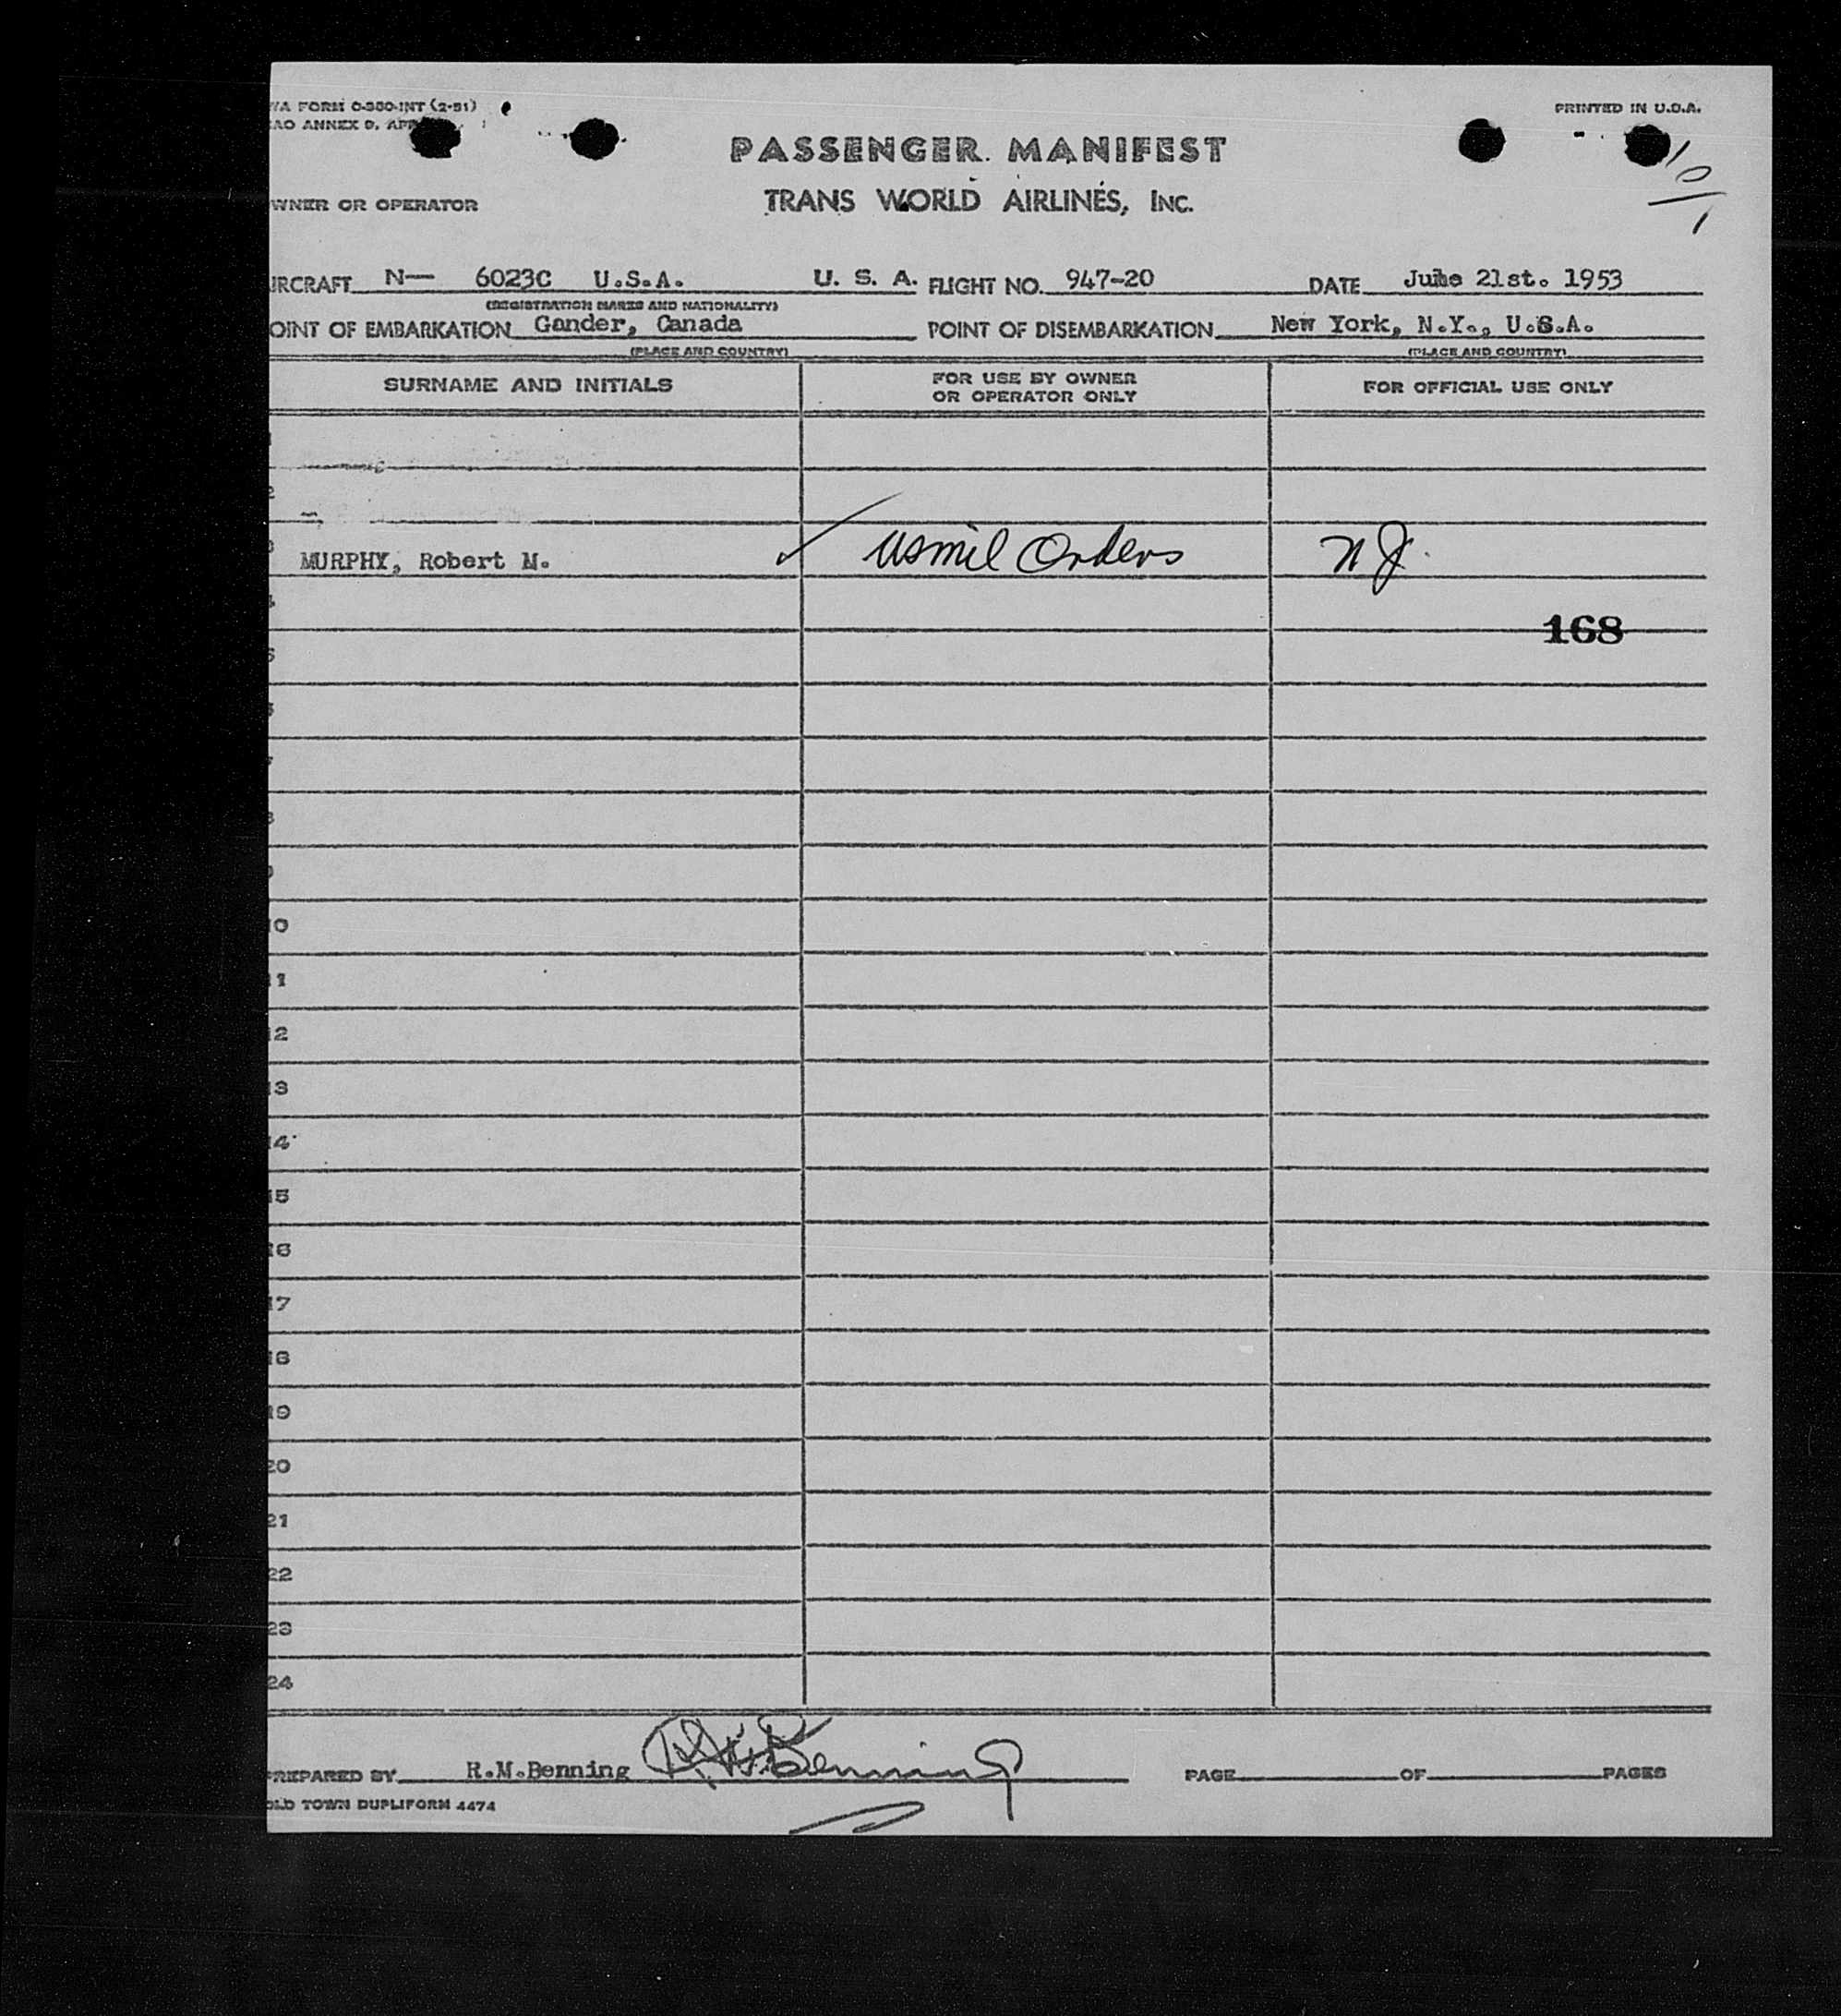 WA FORM O-380-INT (2-51)
PRINTED IN U.S.A.
CAO ANNEX 9, APP
PASSENGER MANIFEST
TRANS WORLD AIRLINES, INC.
WNER OR OPERATOR
10
1
IRCRAFT N— 6023C U.S.A. U. S. A. FLIGHT NO. 947-20 DATE June 21st. 1953
(REGISTRATION MARKS AND NATIONALITY)
OINT OF EMBARKATION Gander, Canada POINT OF DISEMBARKATION New York, N.Y., U.S.A.
(PLACE AND COUNTRY) (PLACE AND COUNTRY)
SURNAME AND INITIALS FOR USE BY OWNER OR OPERATOR ONLY FOR OFFICIAL USE ONLY
1
2
3 MURPHY, Robert M. ✓ usmil Orders NJ.
4
168
5
6
7
8
9
10
11
12
13
14
15
16
17
18
19
20
21
22
23
24
PREPARED BY R.M.Benning R.M.Benning PAGE OF PAGES
OLD TOWN DUPLIFORM 4474